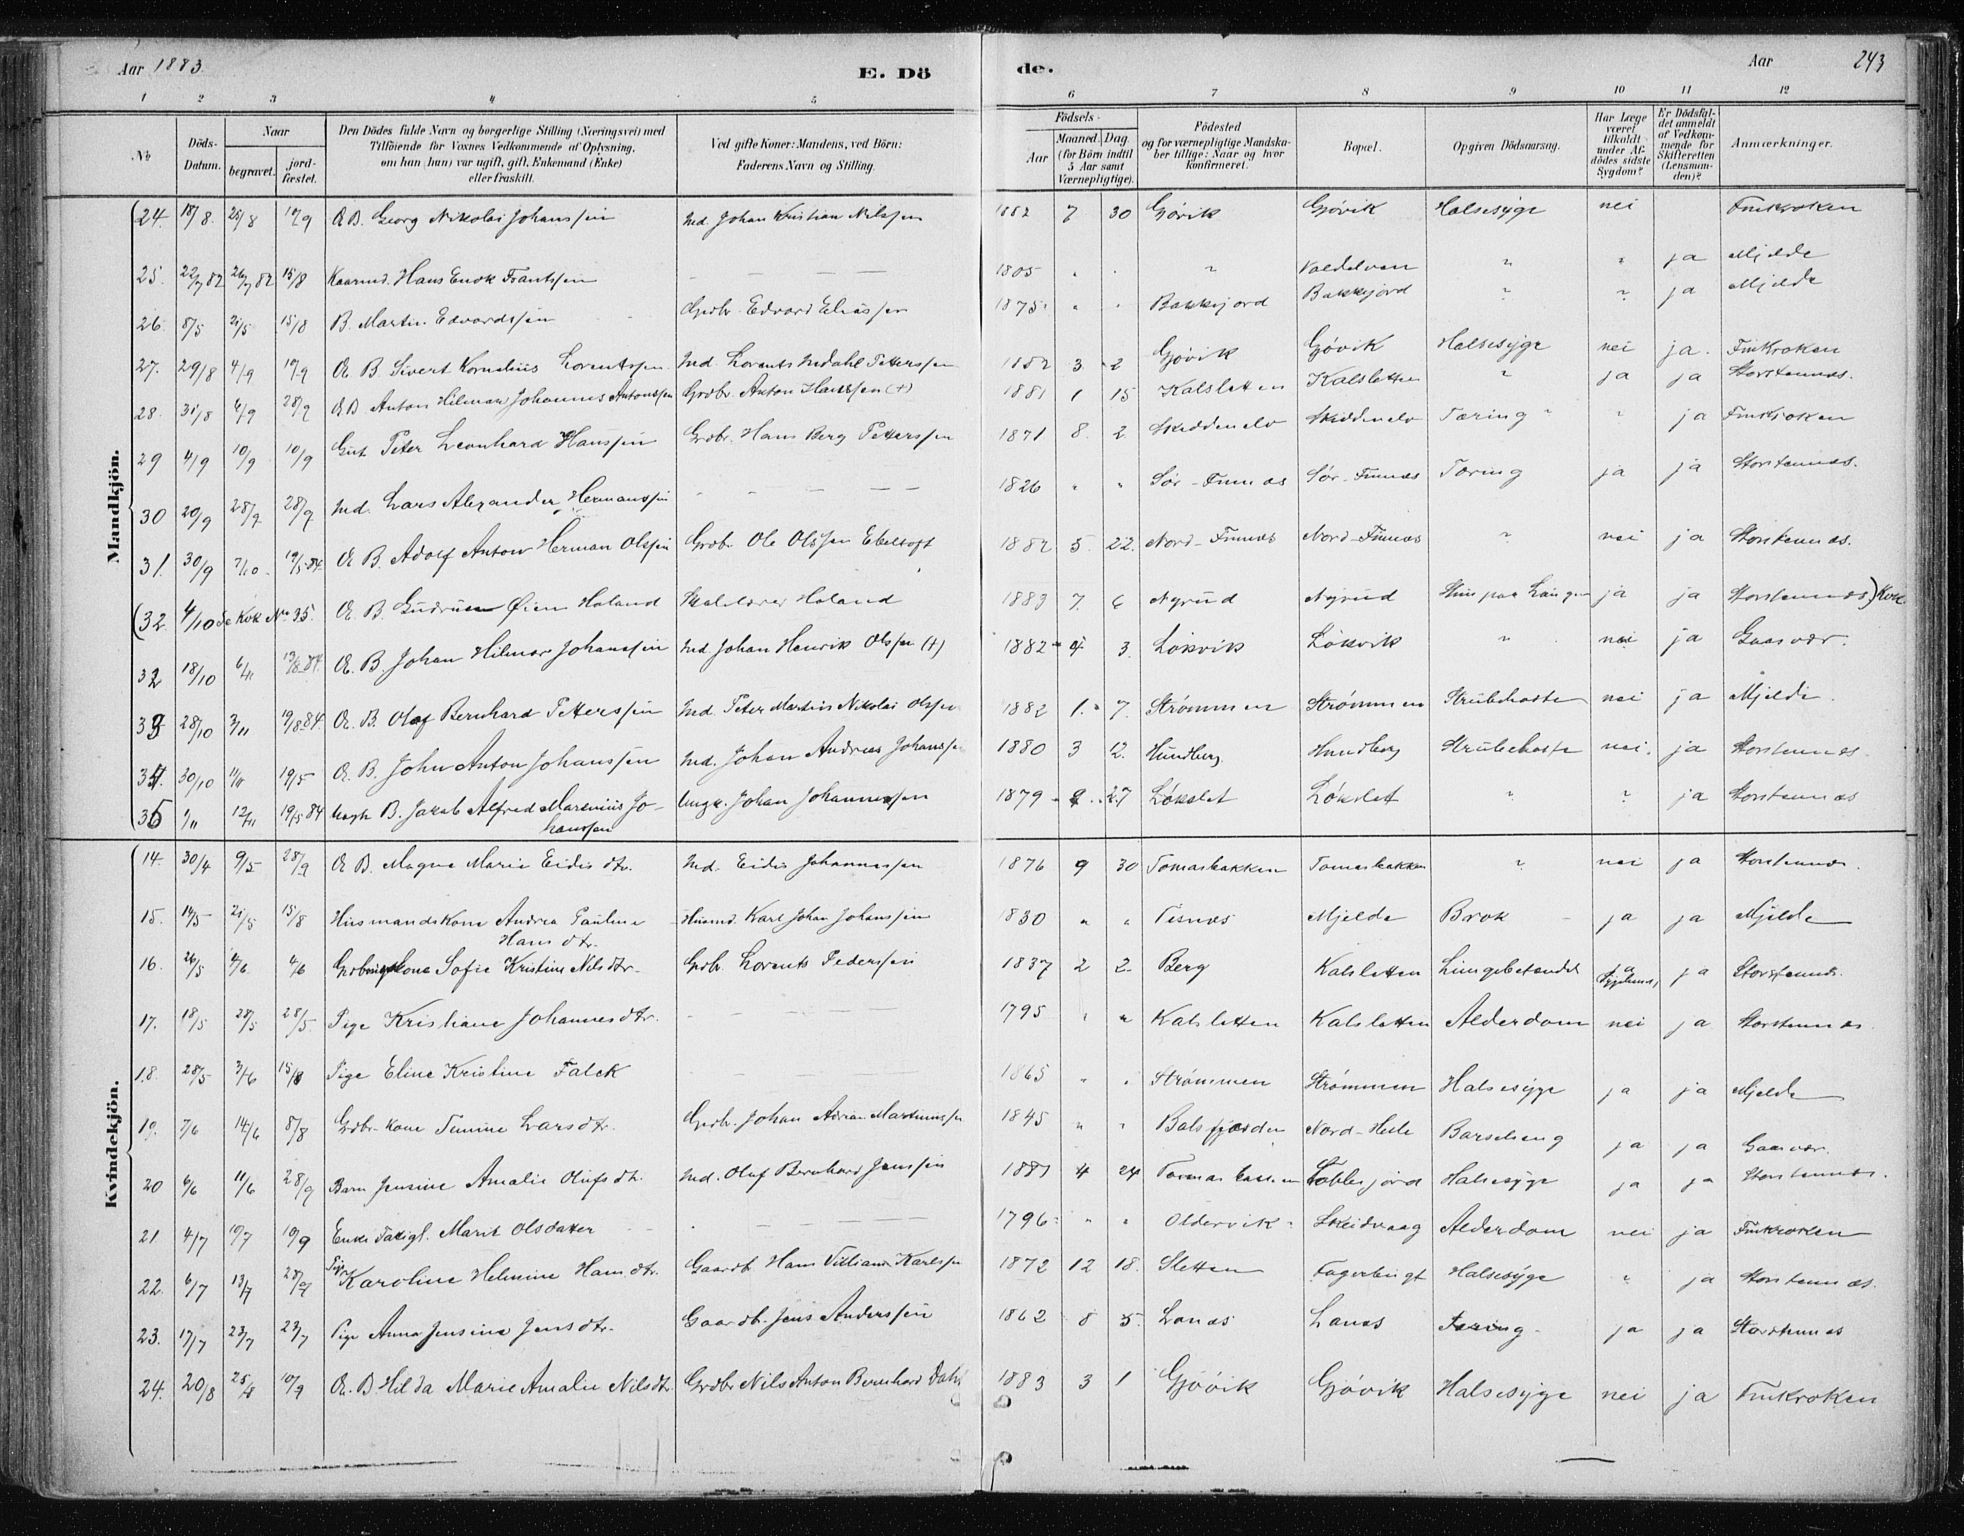 Aar 1883.
E. Dö
de.
Aar
243
1 2 3 4 5 6 7 8 9 10 11 12
No
Döds-Datum.
Naar
begravet.
jord-fæstet.
Den Dödes fulde Navn og borgerlige Stilling (Næringsvei) med Tilföiende for Voxnes Vedkommende af Oplysning, om han (hun) var ugift, gift, Enkemand (Enke) eller fraskilt.
Ved gifte Koner: Mandens, ved Börn: Faderens Navn og Stilling.
Födsels-
Aar
Maaned. Dag.
(for Börn indtil 5 Aar samt Værnepligtige).
Födested og for værnepligtige Mandskaber tillige: Naar og hvor konfirmeret.
Bopæl.
Opgiven Dödsaarsag.
Har Læge været tilkaldt under Afdödes sidste Sygdom?
Er Dödsfaldet anmeldt af Vedkommende for Skifteretten (Lensmanden)?
Anmærkninger.
Mandkjön.
24. 18/8. 25/8 Æ B. Georg Nikolai Johanssen Ind Johan Kristian Nilssen 1882 7 30 Gjövik Gjövik Halssyge nei Finkroken
25. 22/7 82 26/7 82 15/8 Kaarmd. Hans Enok Frantssen 1805 " " " Kaldelven " " ja Mjelde
26. 8/5 21/5 15/8 B. Martin Edvardssen Grdbr. Edvard Eliassen 1875 " " Bakkejord Bakkejord " " ja Mjelde
27. 29/8 4/9 Æ B. Sivert Kornelius Lorentssen Ind. Lorents Indahl Petterssen 1882 3 2 Gjövik Gjövik Halsesyge nei ja. Finkroken
28. 31/8 4/9 28/9 Æ B. Anton Hilmar Johannes Antonssen Grdbr. Anton Hanssen (+) 1881 1 15 Kalsletten Kalsletten " ja ja Storstennæs.
29 4/9 10/9 10/9 Gut Peter Leonhard Hanssen Grdbr. Hans Berg Petterssen 1871 8. 2 Skiddenelv Skiddenelv Tæring " " ja Finkroken
30 20/9 28/9 28/9 Ind. Lars Alexander Hermanssen 1826 " " Sör-Finnæs Sör-Finnæs Tæring ja ja Storstennæs.
31. 30/9 7/10 19/5 84. Æ B. Adolf Anton Herman Olssen Grdbr Ole Olssen Ebeltoft 1882 5. 22. Nord-Finnæs Nord-Finnæs " nei ja Storstennæs.
(32 4/10 Se Kvk No 35. Æ. B. Gudrun Øien Høland Skolelærer Høland 1883 7. 6 Nygrud Nygrud ja ja Storstennæs) Kvk.
32 18/10 6/11 Æ. B. Johan Hilmar Johanssen Ind Johan Henrik Olssen (+) 1882 4 3. Lökvik Lökvik " nei ja Gaasvær.
33 28/10 3/11 19/8 84. Æ. B. Olaf Bernhard Petterssen Ind. Peter Martin Nikolai Olssen 1882 1. 7. Strømmen Strømmen Strubehoste nei ja Mjelde.
34. 30/10 11/11 19/5 Æ. B. John Anton Johanssen Ind. Johan Andreas Johanssen 1880 3 12. Hundberg Hundberg Strubehoste nei. ja Storstennæs
35 12/11 19/5 84 Uægte B. Jakob Alfred Marenius Johanssen Ungk. Johan Johannessen 1879 27 Lökslet Lökslett " " ja Storstennæs
Kvindekjön.
14. 30/4 9/5 28/9 Æ B. Magna Marie Eidisdtr. Ind. Eidis Johannessen 1876 9 30 Tomasbakken Tomasbakken " nei ja Storstennæs.
15. 14/5 21/5 15/8 Husmandskone Andrea Pauline Hansdtr. Husmd. Karl Johan Johanssen 1830 " " Tisnæs Mjelde Brok ja ja Mjelde
16. 26/5 4/6 4/6 Gardbrugskone Sofie Kristine Nilsdtr. Grdbr. Lorents Pederssen 1837 2 2 Berg Kalsletten Lungebetændel ja ja Storstennæs.
17. 18/5 28/5 28/5. Pige Kristiane Johannesdtr. 1795 " " Kalsletten Kalsletten Alderdom nei ja Storstennæs
18. 28/5 3/6 15/8 Pige Eline Kristine Falck 1865 " " Strømmen Strømmen Halsesyge ja ja Mjelde
19. 7/6 14/6 8/8 Grdbr-kone Temine Larsdtr. Grdbr. Johan Adrian Martinussen 1845 " " Balsfjorden Nord-Hele Barselseng ja ja Gaasvær.
20 6/6 11/6 28/9 Barn Jensine Amalie Olufsdtr. Ind. Oluf Bernhard Jenssen 1881 4 24 Tomasbakken Toblesjord Halsesyge ja ja Storstennæs.
21 4/7 10/7 10/9 Enke Fattigl. Marit Olsdatter 1796 " " Oldervik Skeidvaag Alderdom nei ja Finkroken
22. 6/7 13/7 28/9 Pige Karoline Helmine Hansdtr. Gaardb. Hans Villiam Karlssen 1872 12 18. Sletten Fagerbugt Halsesyge " ja Storstennæs.
23. 17/7 23/7 23/7 Pige Anna Jensine Jensdtr. Gaardb. Jens Anderssen 1862 8 5. Lanæs Lanæs Tæring ja ja Storstennæs
24. 20/8 25/8 10/9 Æ. B Hilda Marie Amalie Nilsdtr. Grdbr Nils Anton Bernhard Dahl 1883 3 1 Gjövik Gjövik Halsesyge nei ja Finkroken